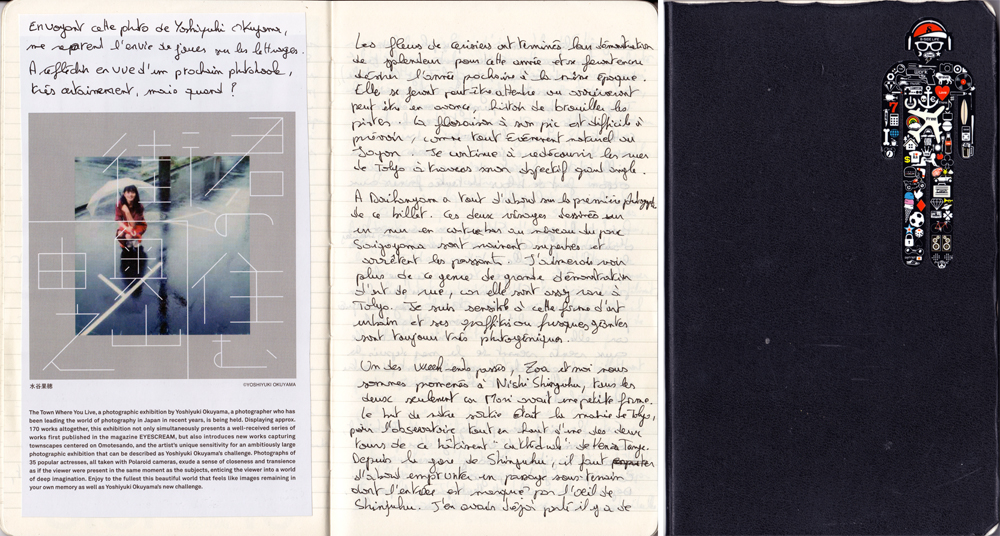 En voyant cette photo de Yoshiyuki Okuyama,
me reprend l'envie de jouer sur les lettrages.
A réfléchir en vue d'un prochain photobook,
très certainement, mais quand ?
君の住む街
水谷果穂
©YOSHIYUKI OKUYAMA
The Town Where You Live, a photographic exhibition by Yoshiyuki Okuyama, a photographer who has
been leading the world of photography in Japan in recent years, is being held. Displaying approx.
170 works altogether, this exhibition not only simultaneously presents a well-received series of
works first published in the magazine EYESCREAM, but also introduces new works capturing
townscapes centered on Omotesando, and the artist's unique sensitivity for an ambitiously large
photographic exhibition that can be described as Yoshiyuki Okuyama's challenge. Photographs of
35 popular actresses, all taken with Polaroid cameras, exude a sense of closeness and transience
as if the viewer were present in the same moment as the subjects, enticing the viewer into a world
of deep imagination. Enjoy to the fullest this beautiful world that feels like images remaining in
your own memory as well as Yoshiyuki Okuyama's new challenge.
Les fleurs de cerisiers ont terminés leur démonstration
de splendeur pour cette année et se feront encore
désirer l'année prochaine à la même époque.
Elle se feront peut être attendre ou arriveront
peut être en avance, histoire de brouiller les
pistes. La floraison à son pic est difficile à
prévoir, comme tout événement naturel au
Japon. Je continue à redécouvrir les rues
de Tokyo à travers mon objectif grand angle.
A Daikanyama a tout d'abord sur la première photographie
de ce billet. Ces deux visages dessinés sur
un mur en contrebas au niveau du parc
Saigoyama sont vraiment superbes et
arrêtent les passants. J'aimerais voir
plus de ce genre de grande démonstration
d'art de rue, car elle sont assez rare à
Tokyo. Je suis sensible à cette forme d'art
urbain et ses graffitis ou fresques géantes
sont toujours très photogéniques.
Un des week-ends passés, Zoa et moi nous
sommes promenés à Nishi Shinjuku, tous les
deux seulement car Mari avait une petite forme.
Le but de notre sortie était la mairie de Tokyo,
pour l'observatoire tout en haut d'une des deux
tours de ce bâtiment "cathédrale" de Kenzo Tange.
Depuis la gare de Shinjuku, il faut
d'abord emprunter un passage souterrain
dont l'entrée est marquée par l'oeil de
Shinjuku. J'en avais déjà parlé il y a de
7